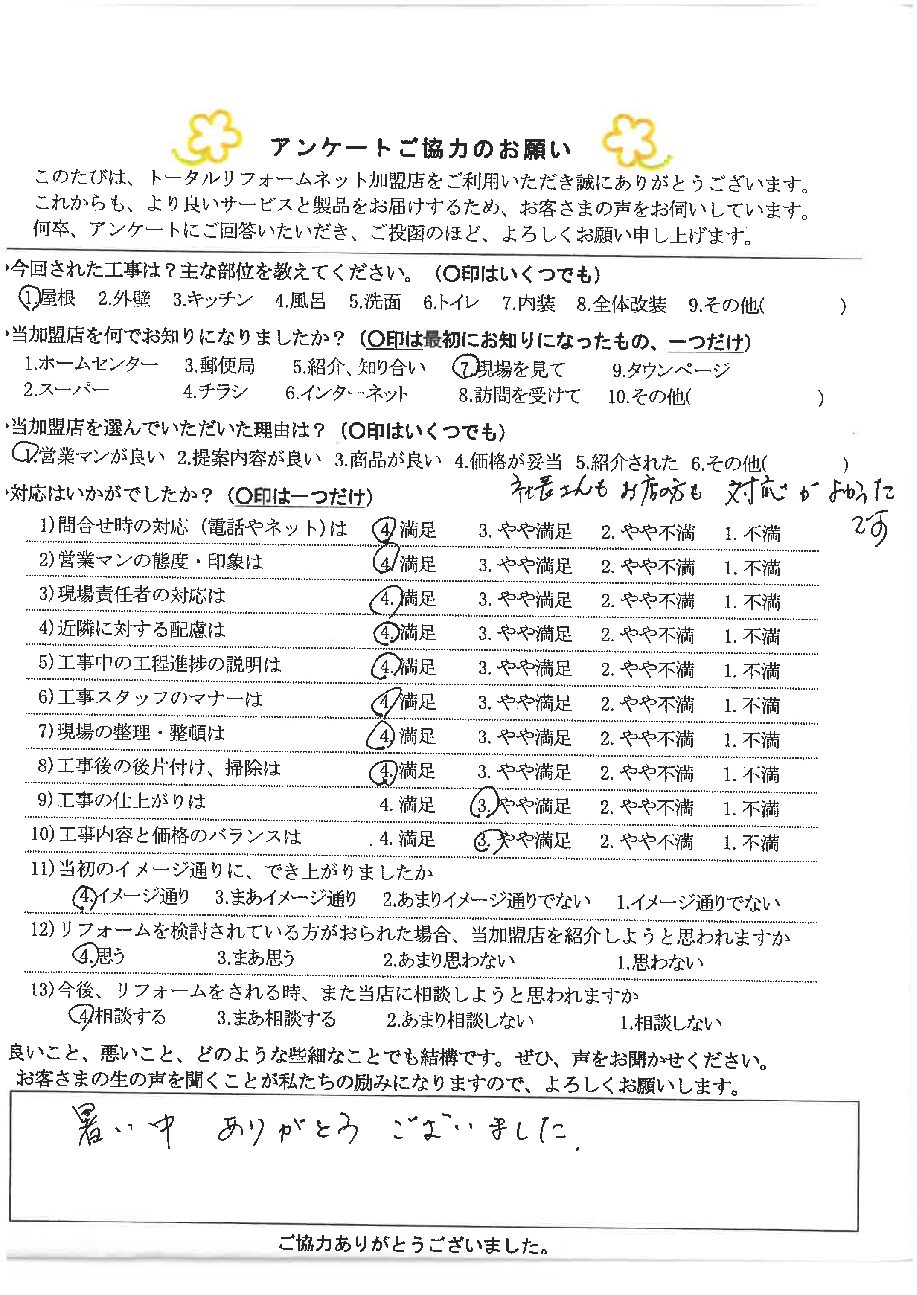 アンケートご協力のお願い
このたびは、トータルリフォームネット加盟店をご利用いただき誠にありがとうございます。
これからも、より良いサービスと製品をお届けするため、お客さまの声をお伺いしています。
何卒、アンケートにご回答いたいだき、ご投函のほど、よろしくお願い申し上げます。
・今回された工事は？主な部位を教えてください。（〇印はいくつでも）
1.屋根 2.外壁 3.キッチン 4.風呂 5.洗面 6.トイレ 7.内装 8.全体改装 9.その他( )
・当加盟店を何でお知りになりましたか？（〇印は最初にお知りになったもの、一つだけ）
1.ホームセンター 3.郵便局 5.紹介、知り合い 7.現場を見て 9.タウンページ
2.スーパー 4.チラシ 6.インターネット 8.訪問を受けて 10.その他( )
・当加盟店を選んでいただいた理由は？（〇印はいくつでも）
1.営業マンが良い 2.提案内容が良い 3.商品が良い 4.価格が妥当 5.紹介された 6.その他( )
社長さんもお店の方も 対応がよかった
です
・対応はいかがでしたか？（〇印は一つだけ）
1)問合せ時の対応（電話やネット)は 4.満足 3.やや満足 2.やや不満 1.不満
2)営業マンの態度・印象は 4.満足 3.やや満足 2.やや不満 1.不満
3)現場責任者の対応は 4.満足 3.やや満足 2.やや不満 1.不満
4)近隣に対する配慮は 4.満足 3.やや満足 2.やや不満 1.不満
5)工事中の工程進捗の説明は 4.満足 3.やや満足 2.やや不満 1.不満
6)工事スタッフのマナーは 4.満足 3.やや満足 2.やや不満 1.不満
7)現場の整理・整頓は 4.満足 3.やや満足 2.やや不満 1.不満
8)工事後の後片付け、掃除は 4.満足 3.やや満足 2.やや不満 1.不満
9)工事の仕上がりは 4.満足 3.やや満足 2.やや不満 1.不満
10)工事内容と価格のバランスは 4.満足 3.やや満足 2.やや不満 1.不満
11)当初のイメージ通りに、でき上がりましたか
4.イメージ通り 3.まあイメージ通り 2.あまりイメージ通りでない 1.イメージ通りでない
12)リフォームを検討されている方がおられた場合、当加盟店を紹介しようと思われますか
4.思う 3.まあ思う 2.あまり思わない 1.思わない
13)今後、リフォームをされる時、また当店に相談しようと思われますか
4.相談する 3.まあ相談する 2.あまり相談しない 1.相談しない
良いこと、悪いこと、どのような些細なことでも結構です。ぜひ、声をお聞かせください。
お客さまの生の声を聞くことが私たちの励みになりますので、よろしくお願いします。
暑い中 ありがとう ございました.
ご協力ありがとうございました。